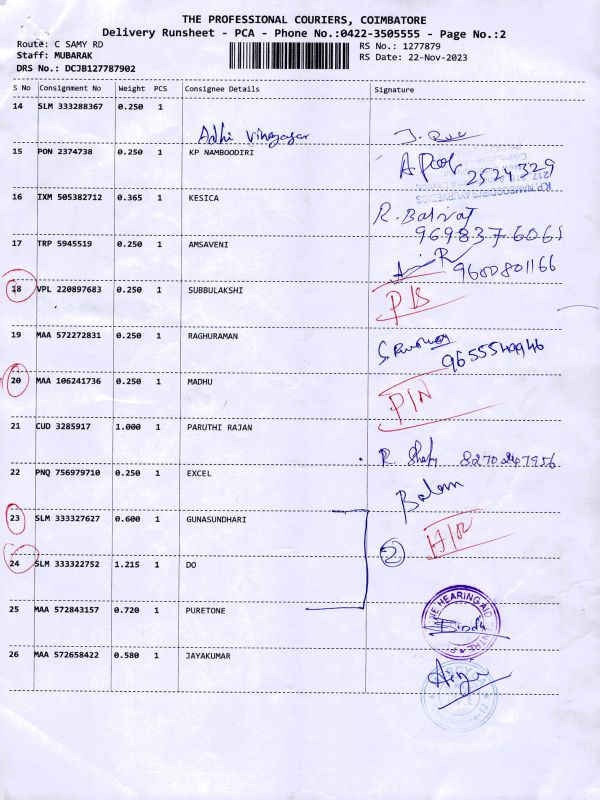 THE PROFESSIONAL COURIERS, COIMBATORE
Delivery Runsheet - PCA - Phone No.:0422-3505555 - Page No.:2
Route: C SAMY RD
RS No.: 1277879
Staff: MUBARAK
RS Date: 22-Nov-2023
DRS No.: DCJB127787902
S No Consignment No Weight PCS Consignee Details Signature
14 SLM 333288367 0.250 1
Adhi Vinayagar
15 PON 2374738 0.250 1 KP NAMBOODIRI
2524329
16 IXM 505382712 0.365 1 KESICA
R. Balraj
9698376065
17 TRP 5945519 0.250 1 AMSAVENI
9600801166
18 VPL 220897683 0.250 1 SUBBULAKSHI
19 MAA 572272831 0.250 1 RAGHURAMAN
20 MAA 106241736 0.250 1 MADHU
21 CUD 3285917 1.000 1 PARUTHI RAJAN
22 PNQ 756979710 0.250 1 EXCEL
23 SLM 333327627 0.600 1 GUNASUNDHARI
24 SLM 333322752 1.215 1 DO
2
25 MAA 572843157 0.720 1 PURETONE
26 MAA 572658422 0.580 1 JAYAKUMAR